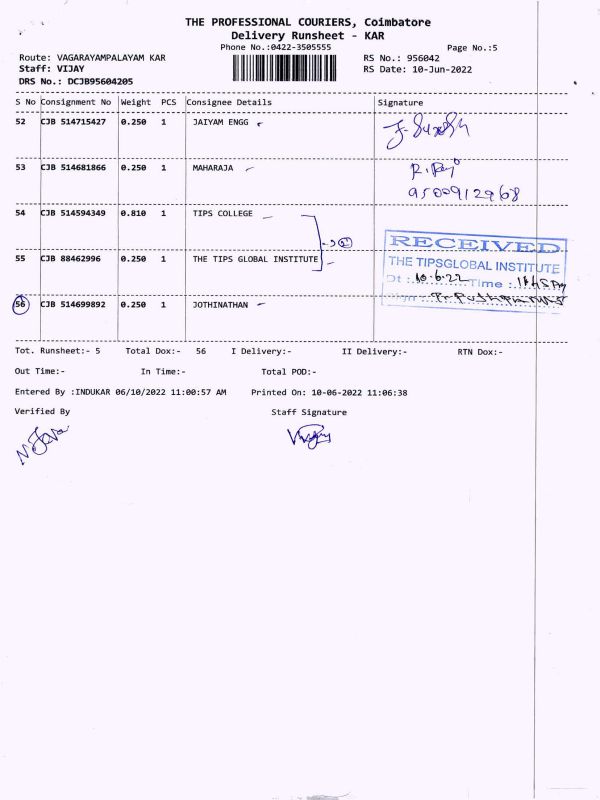 THE PROFESSIONAL COURIERS, Coimbatore
Delivery Runsheet - KAR
Phone No.:0422-3505555
Page No.:5
Route: VAGARAYAMPALAYAM KAR
RS No.: 956042
Staff: VIJAY
RS Date: 10-Jun-2022
DRS No.: DCJB95604205
S No Consignment No Weight PCS Consignee Details Signature
52 CJB 514715427 0.250 1 JAIYAM ENGG
53 CJB 514681866 0.250 1 MAHARAJA
9500912968
54 CJB 514594349 0.810 1 TIPS COLLEGE
RECEIVED
55 CJB 88462996 0.250 1 THE TIPS GLOBAL INSTITUTE
THE TIPSGLOBAL INSTITUTE
Dt : 10.6.22 Time :
56 CJB 514699892 0.250 1 JOTHINATHAN
Tot. Runsheet:- 5 Total Dox:- 56 I Delivery:- II Delivery:- RTN Dox:-
Out Time:- In Time:- Total POD:-
Entered By :INDUKAR 06/10/2022 11:00:57 AM Printed On: 10-06-2022 11:06:38
Verified By Staff Signature